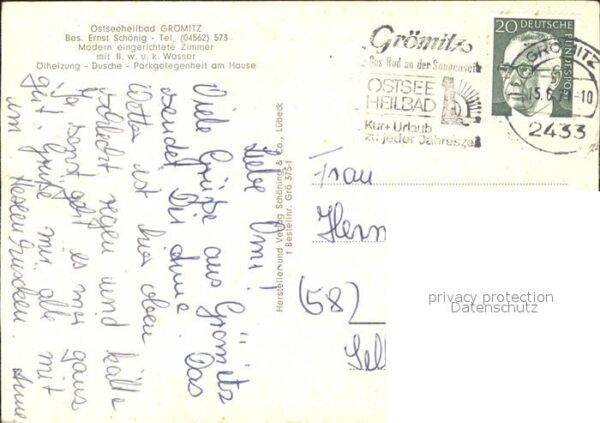 Ostseeheilbad GRÖMITZ
Bes. Ernst Schönig - Tel. (04562) 573
Modern eingerichtete Zimmer
mit fl. w. u. k. Wasser
Ölheizung - Dusche - Parkgelegenheit am Hause
Liebe Omi!
Viele Grüße aus Grömitz
sendet Dir Anne. Das
Wetter ist hier oben
schlecht regen und kälte
Ja sonst geht es mir ganz
gut. Grüße mir alle mit
um
Anne
Hersteller und Verlag Schöning & Co., Lübeck
Bestellnr. Grö 375
Grömitz
Das Bad an der Sonnenseite
OSTSEE
HEILBAD
Kur + Urlaub
zu jeder Jahresze
20 DEUTSCHE
BUNDESPOST
GRÖMITZ
-10
2433
Frau
Herm
(58)
privacy protection
Datenschutz